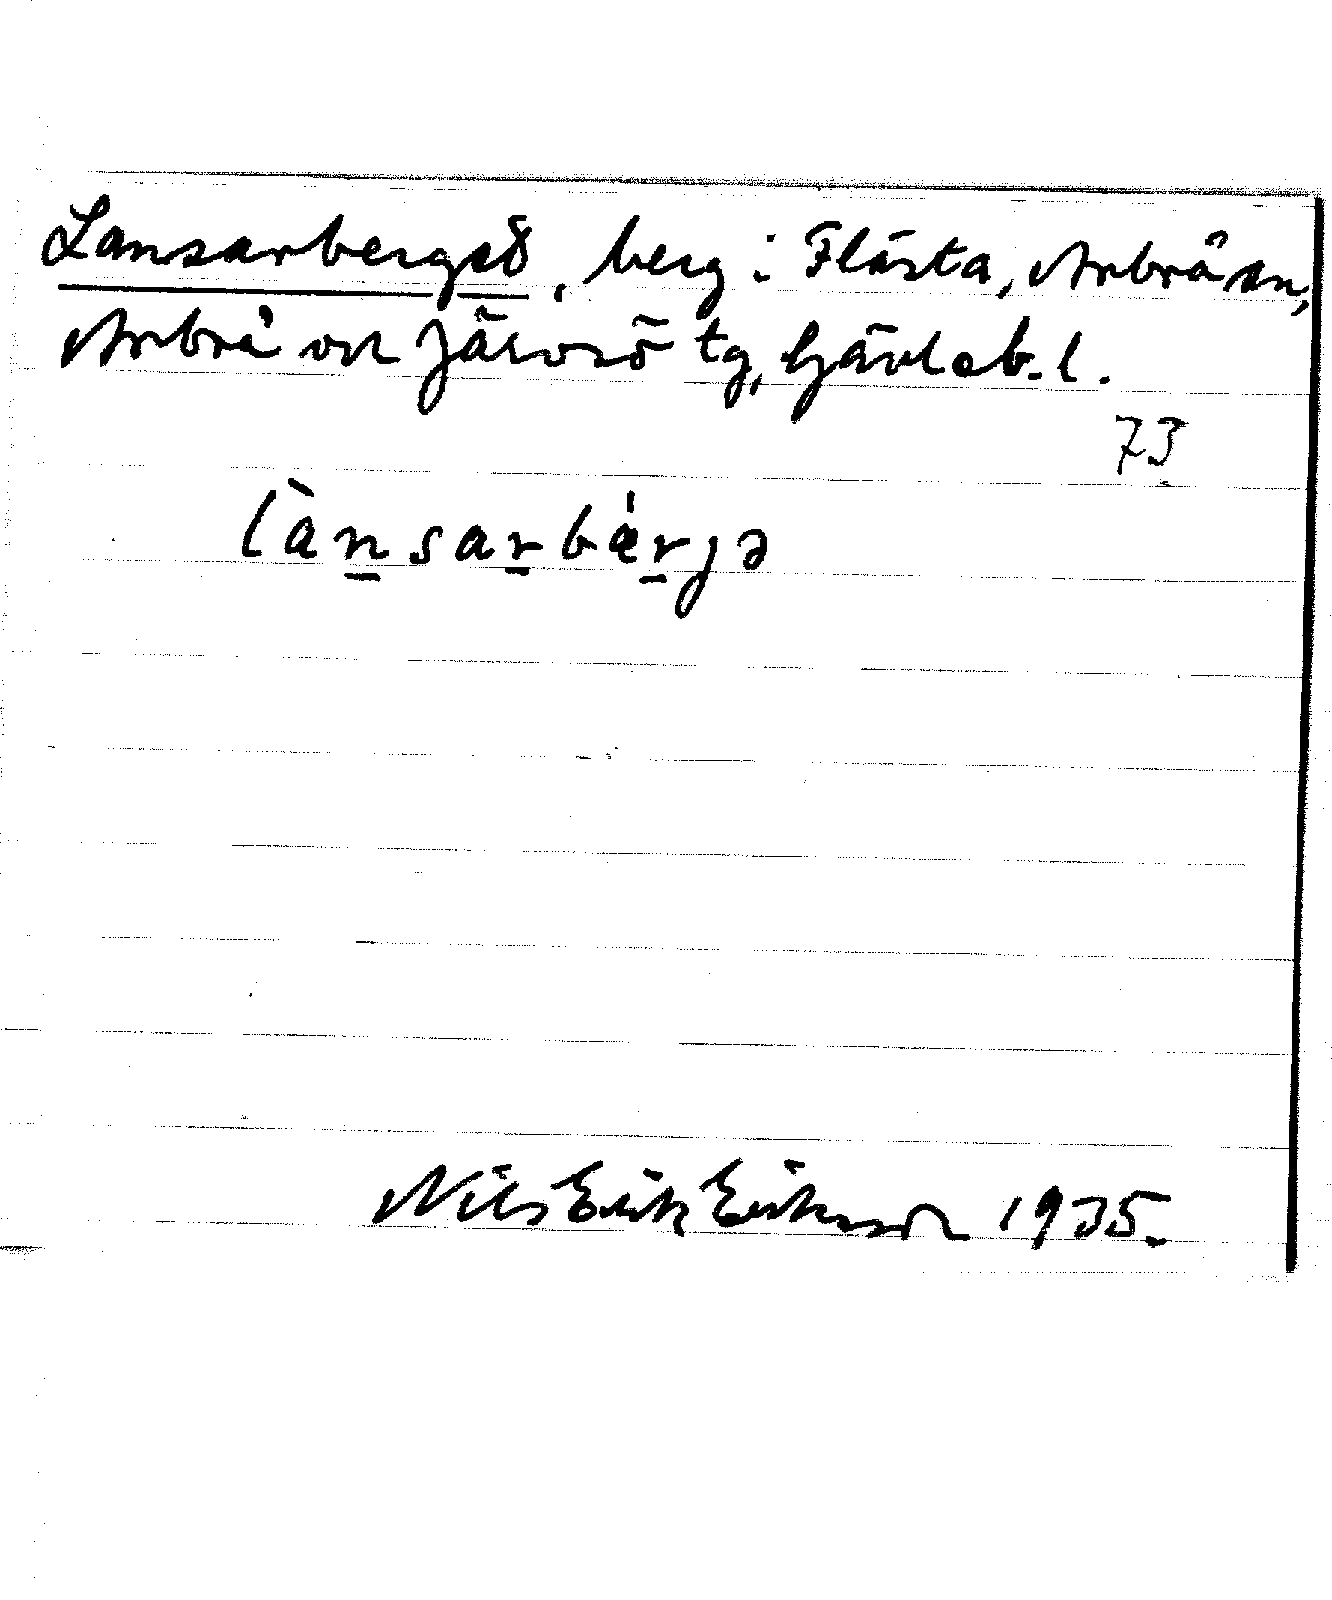 Lansarberget, berg i Flästa, Arbrå sn,
Arbrå och Järvsö tg, Gävleb. l.
73
lànsarbǽrjə
Nils Erik Eriksson 1935.